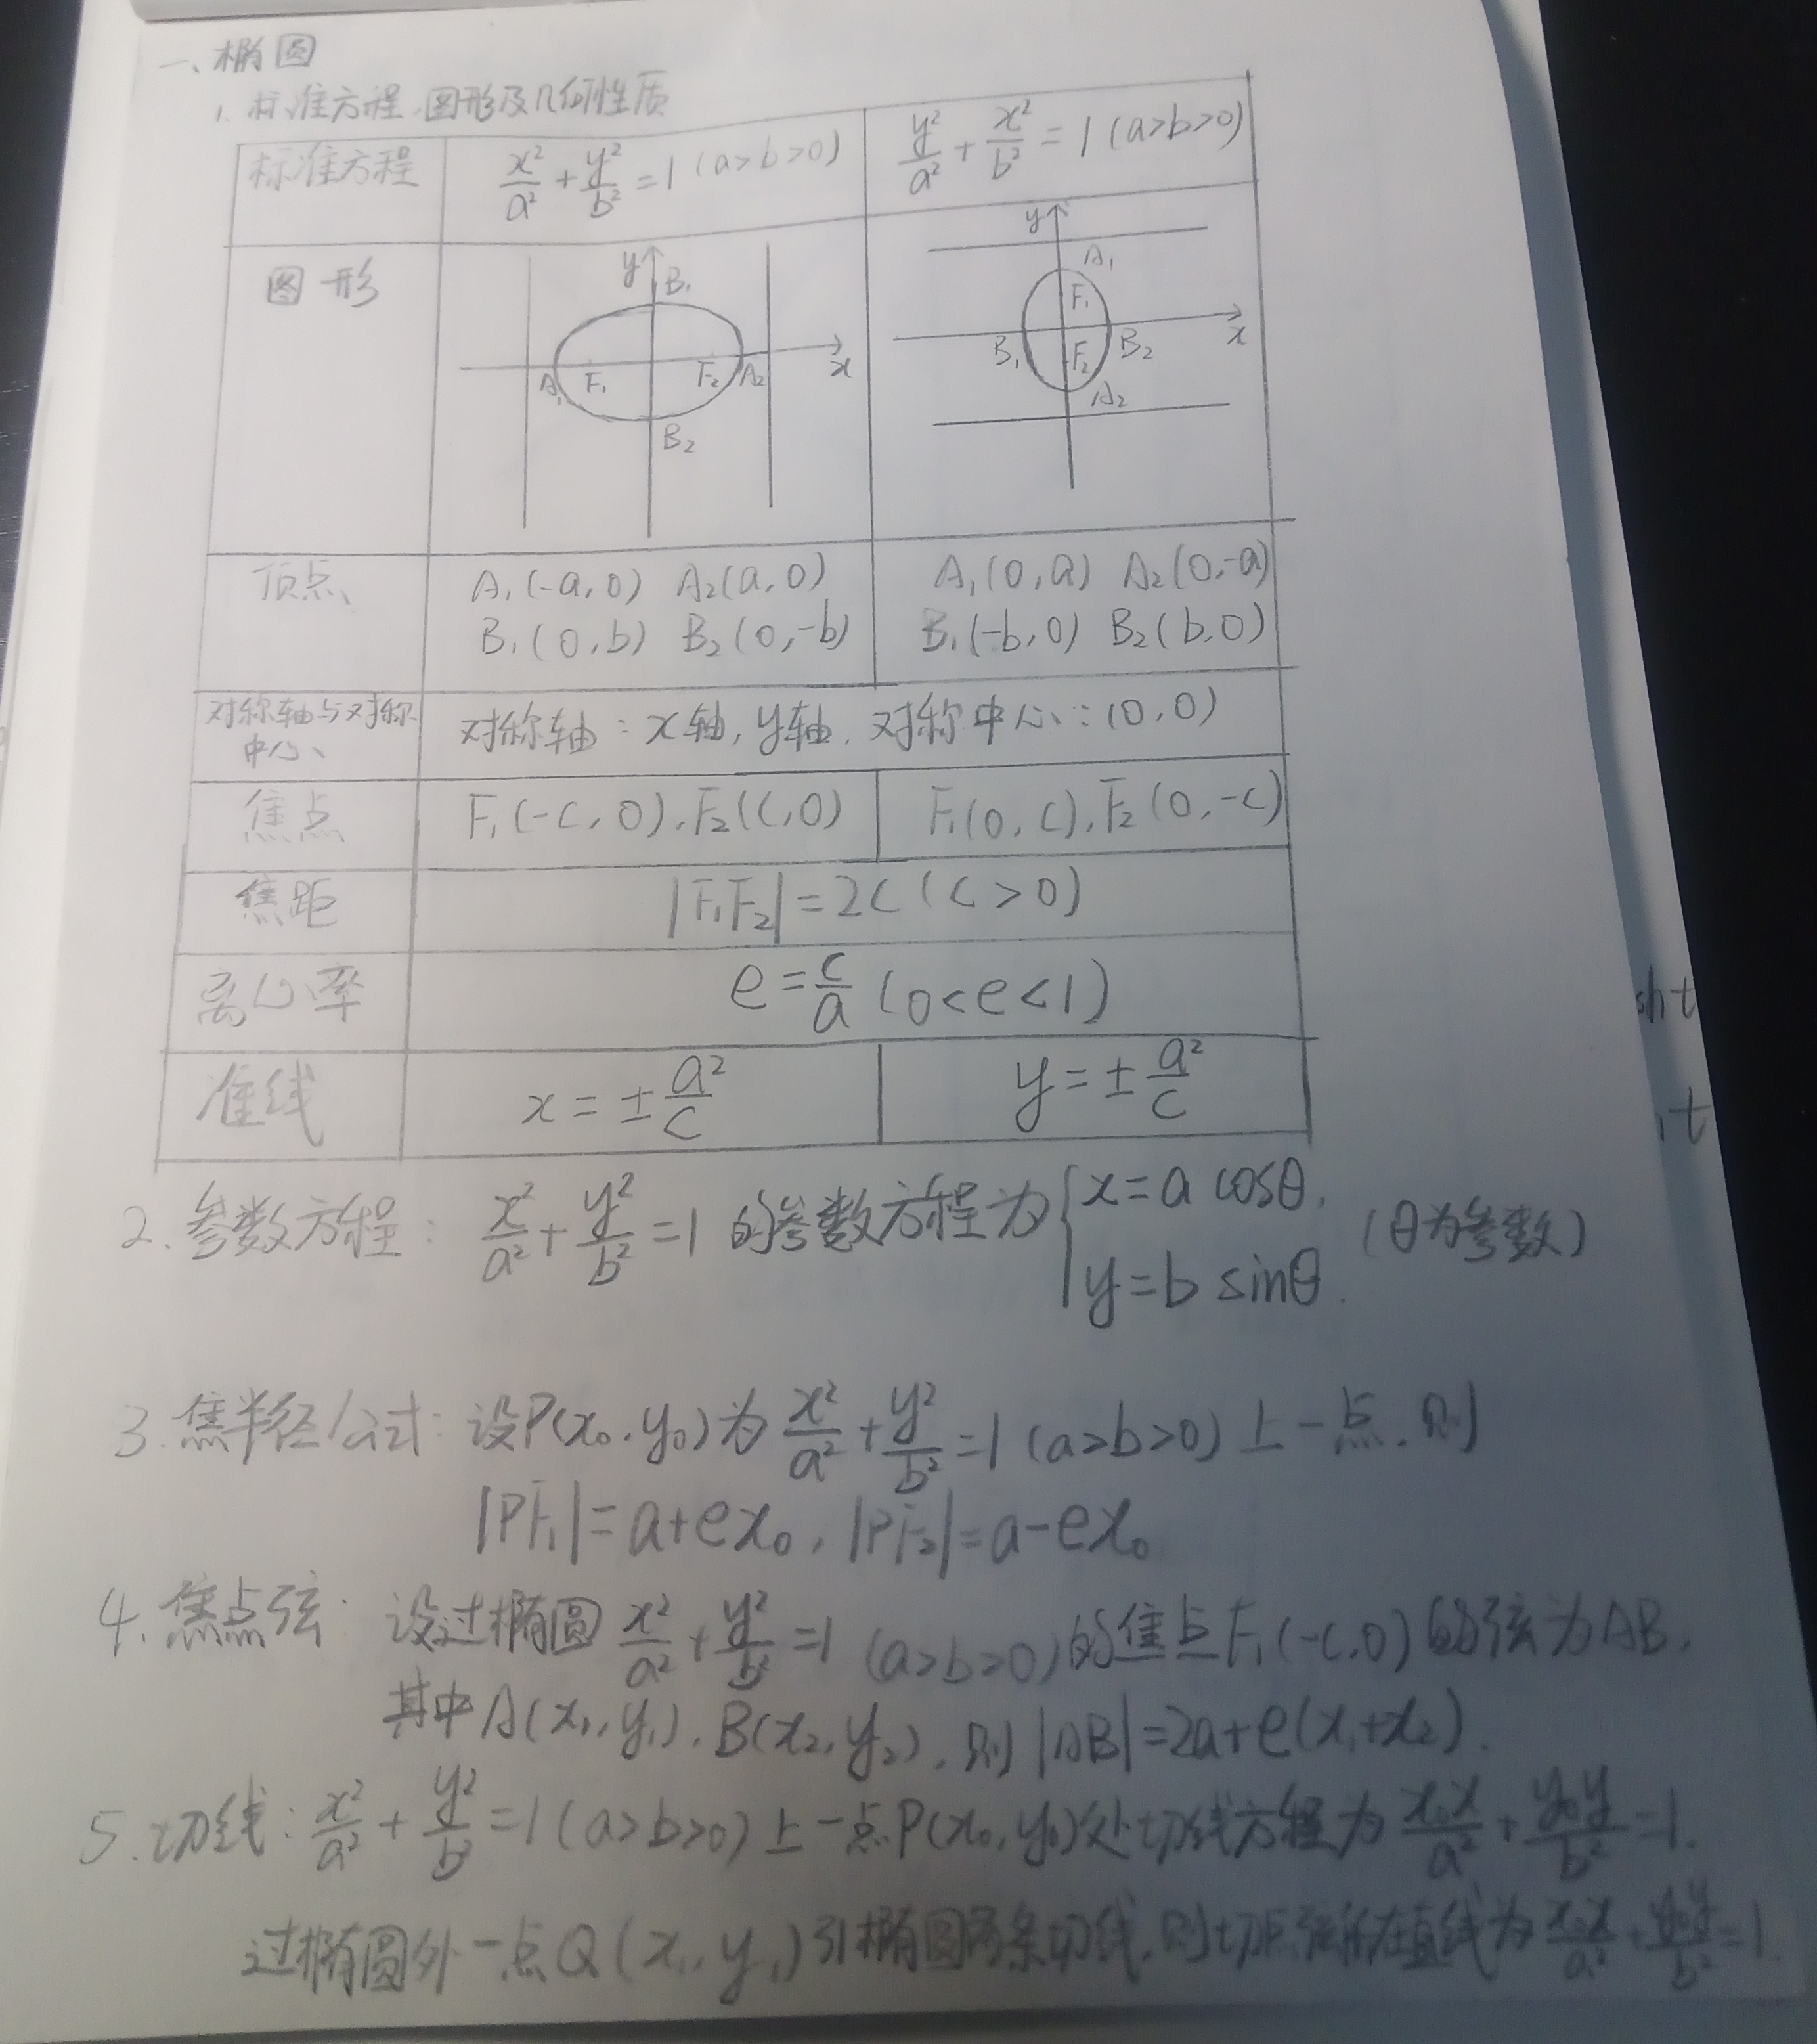 一、椭圆
1. 标准方程、图形及几何性质
标准方程 x²/a² + y²/b² = 1 (a>b>0) y²/a² + x²/b² = 1 (a>b>0)
图形
y B₁ A₁ F₁ F₂ A₂ x B₂
y A₁ F₁ B₁ F₂ B₂ x A₂
顶点 A₁(-a,0) A₂(a,0) A₁(0,a) A₂(0,-a)
B₁(0,b) B₂(0,-b) B₁(-b,0) B₂(b,0)
对称轴与对称
中心 对称轴：x轴,y轴, 对称中心：(0,0)
焦点 F₁(-c,0), F₂(c,0) F₁(0,c), F₂(0,-c)
焦距 |F₁F₂|=2c (c>0)
离心率 e=c/a (0<e<1)
准线 x=±a²/c y=±a²/c
2.参数方程：x²/a² + y²/b² = 1 的参数方程为 { x=a cosθ, y=b sinθ. (θ为参数)
3.焦半径公式：设P(x₀,y₀)为 x²/a² + y²/b² = 1 (a>b>0)上一点,则
|PF₁|=a+ex₀, |PF₂|=a-ex₀
4.焦点弦：设过椭圆 x²/a² + y²/b² = 1 (a>b>0)的焦点F₁(-c,0)的弦为AB,
其中A(x₁,y₁), B(x₂,y₂), 则|AB|=2a+e(x₁+x₂).
5.切线：x²/a² + y²/b² = 1 (a>b>0)上一点P(x₀,y₀)处切线方程为 x₀x/a² + y₀y/b² = 1.
过椭圆外一点Q(x₁,y₁)引椭圆两条切线,则切点弦所在直线为